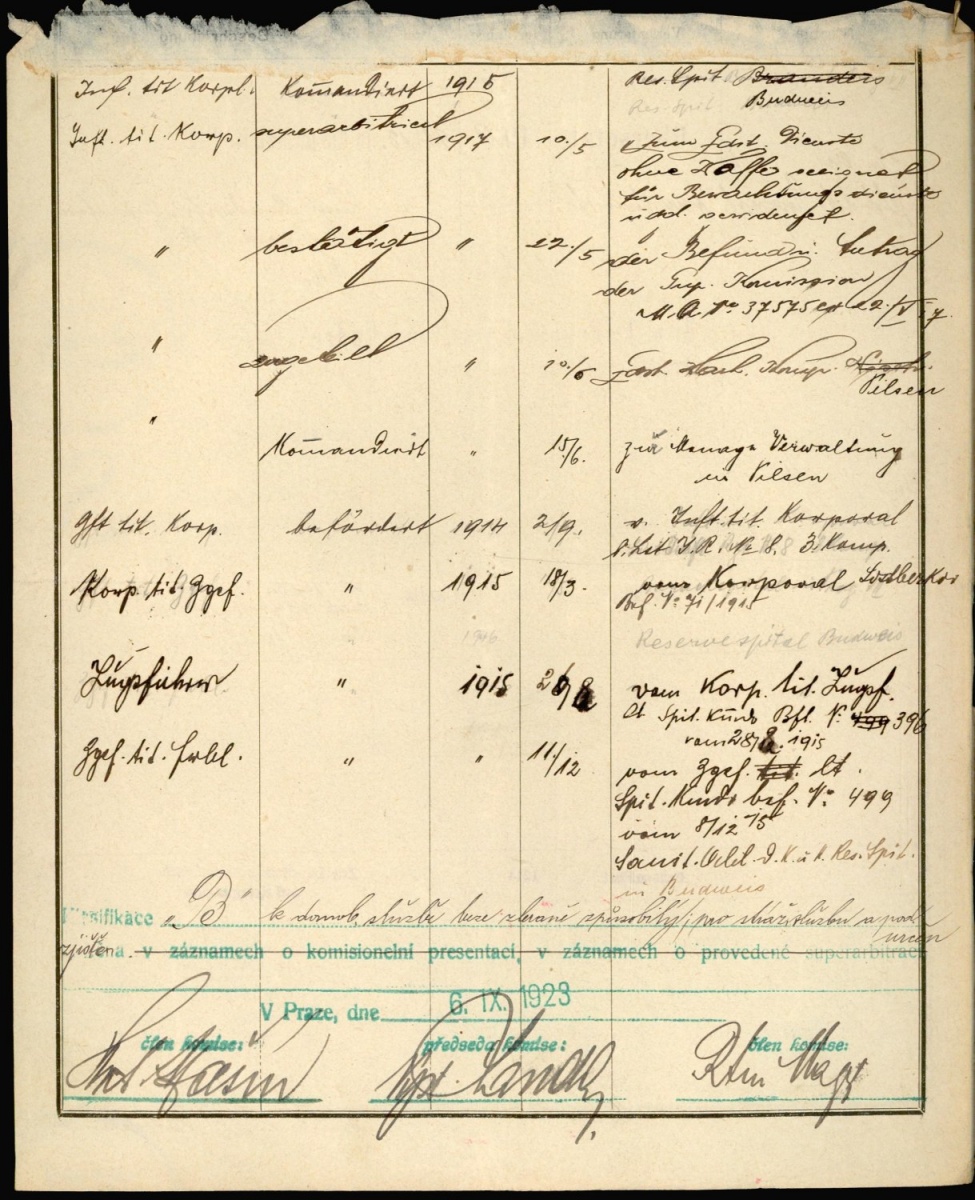 Inf. tit Korpl. Kommandiert 1915 Res. Spit Branders
Budweis
Res. Spit
Inft. tit. Korp. superarbitriert 1917 10./5 "Zum Ldst. Dienste
ohne Waffe geeignet
für Bewachungsdienste
" bestätigt " 22./5 der Befund u. Antrag
der Sup. Komission
M.A. No 37575 22./V 17
" " 10./6 Ldst. Komp.
Pilsen
"
Kommandiert " 15./6. zur Menage Verwaltung
in Pilsen
Gft tit. Korp. befördert 1914 2/9. v. Inft. tit. Korporal
I.R. No 3. Komp.
Korp. tit. Zgsf. " 1915 18/3. vom Korporal
Bef. No 71/1915
1916 Reservespital Budweis
Zugsführer " 1915 28/8 vom Korp. tit. Zugsf.
lt Spit. Kmdo Bfl. No 499 396
vom 28/8. 1915
Zgsf. tit. Fwbl. " " 11./12 vom Zgsf. tit. lt.
Spit. Kmdo bef. No 499
vom 8/12 15
Sanit. Abtl. d. K. u. K. Res. Spit.
in Budweis
Klasifikace „B" k domob. službě beze zbraně způsobilý; pro stráž. službu a pod.
určen
zjištěna v záznamech o komisionelní presentaci, v záznamech o provedené superarbitraci
V Praze, dne 6. IX. 1923
člen komise: předseda komise: člen komise: